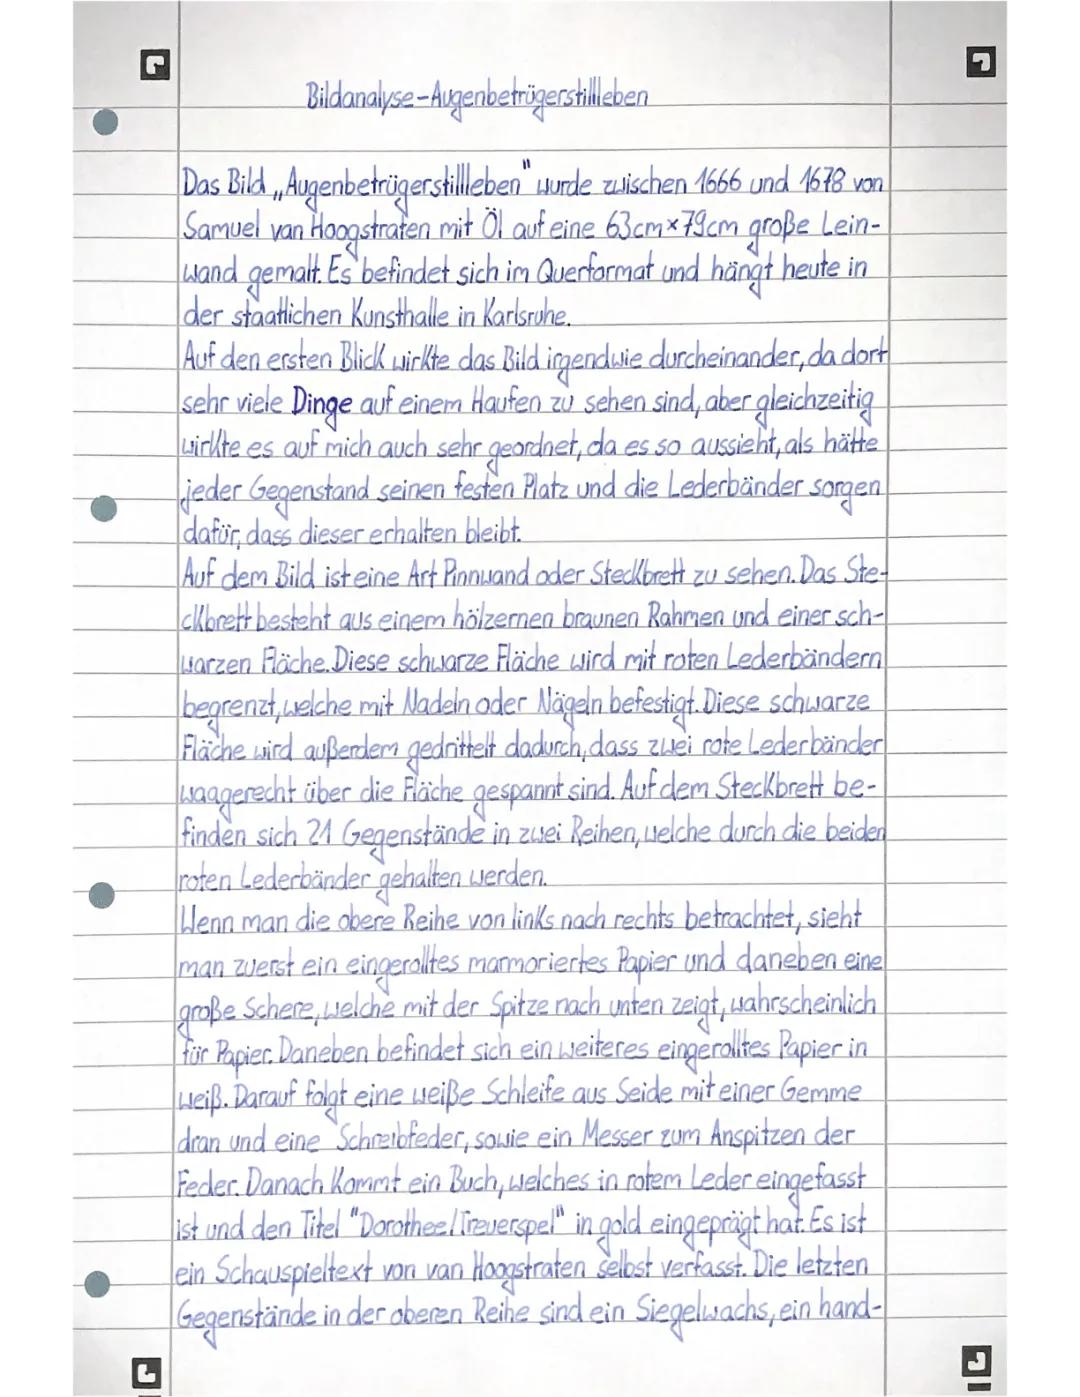 Bildanalyse-Augenbetrügerstillleben
Das Bild „Augenbetrügerstillleben" wurde zwischen 1666 und 1678 von
Samuel van Hoogstraten mit Öl auf eine 63cm×79cm große Lein-
wand gemalt. Es befindet sich im Querformat und hängt heute in
der staatlichen Kunsthalle in Karlsruhe.
Auf den ersten Blick wirkte das Bild irgendwie durcheinander, da dort
sehr viele Dinge auf einem Haufen zu sehen sind, aber gleichzeitig
wirkte es auf mich auch sehr geordnet, da es so aussieht, als hätte
jeder Gegenstand seinen festen Platz und die Lederbänder sorgen
dafür, dass dieser erhalten bleibt.
Auf dem Bild ist eine Art Pinnwand oder Steckbrett zu sehen. Das Ste-
ckbrett besteht aus einem hölzernen braunen Rahmen und einer sch-
warzen Fläche. Diese schwarze Fläche wird mit roten Lederbändern
begrenzt, welche mit Nadeln oder Nägeln befestigt. Diese schwarze
Fläche wird außerdem gedrittelt dadurch, dass zwei rote Lederbänder
waagerecht über die Fläche gespannt sind. Auf dem Steckbrett be-
finden sich 21 Gegenstände in zwei Reihen, welche durch die beiden
roten Lederbänder gehalten werden.
Wenn man die obere Reihe von links nach rechts betrachtet, sieht
man zuerst ein eingerolltes marmoriertes Papier und daneben eine
große Schere, welche mit der Spitze nach unten zeigt, wahrscheinlich
für Papier. Daneben befindet sich ein weiteres eingerolltes Papier in
weiß. Darauf folgt eine weiße Schleife aus Seide mit einer Gemme
dran und eine Schreibfeder, sowie ein Messer zum Anspitzen der
Feder. Danach kommt ein Buch, welches in rotem Leder eingefasst
ist und den Titel "Dorothee/Treuerspel" in gold eingeprägt hat. Es ist
ein Schauspieltext von van Hoogstraten selbst verfasst. Die letzten
Gegenstände in der oberen Reihe sind ein Siegelwachs, ein hand-